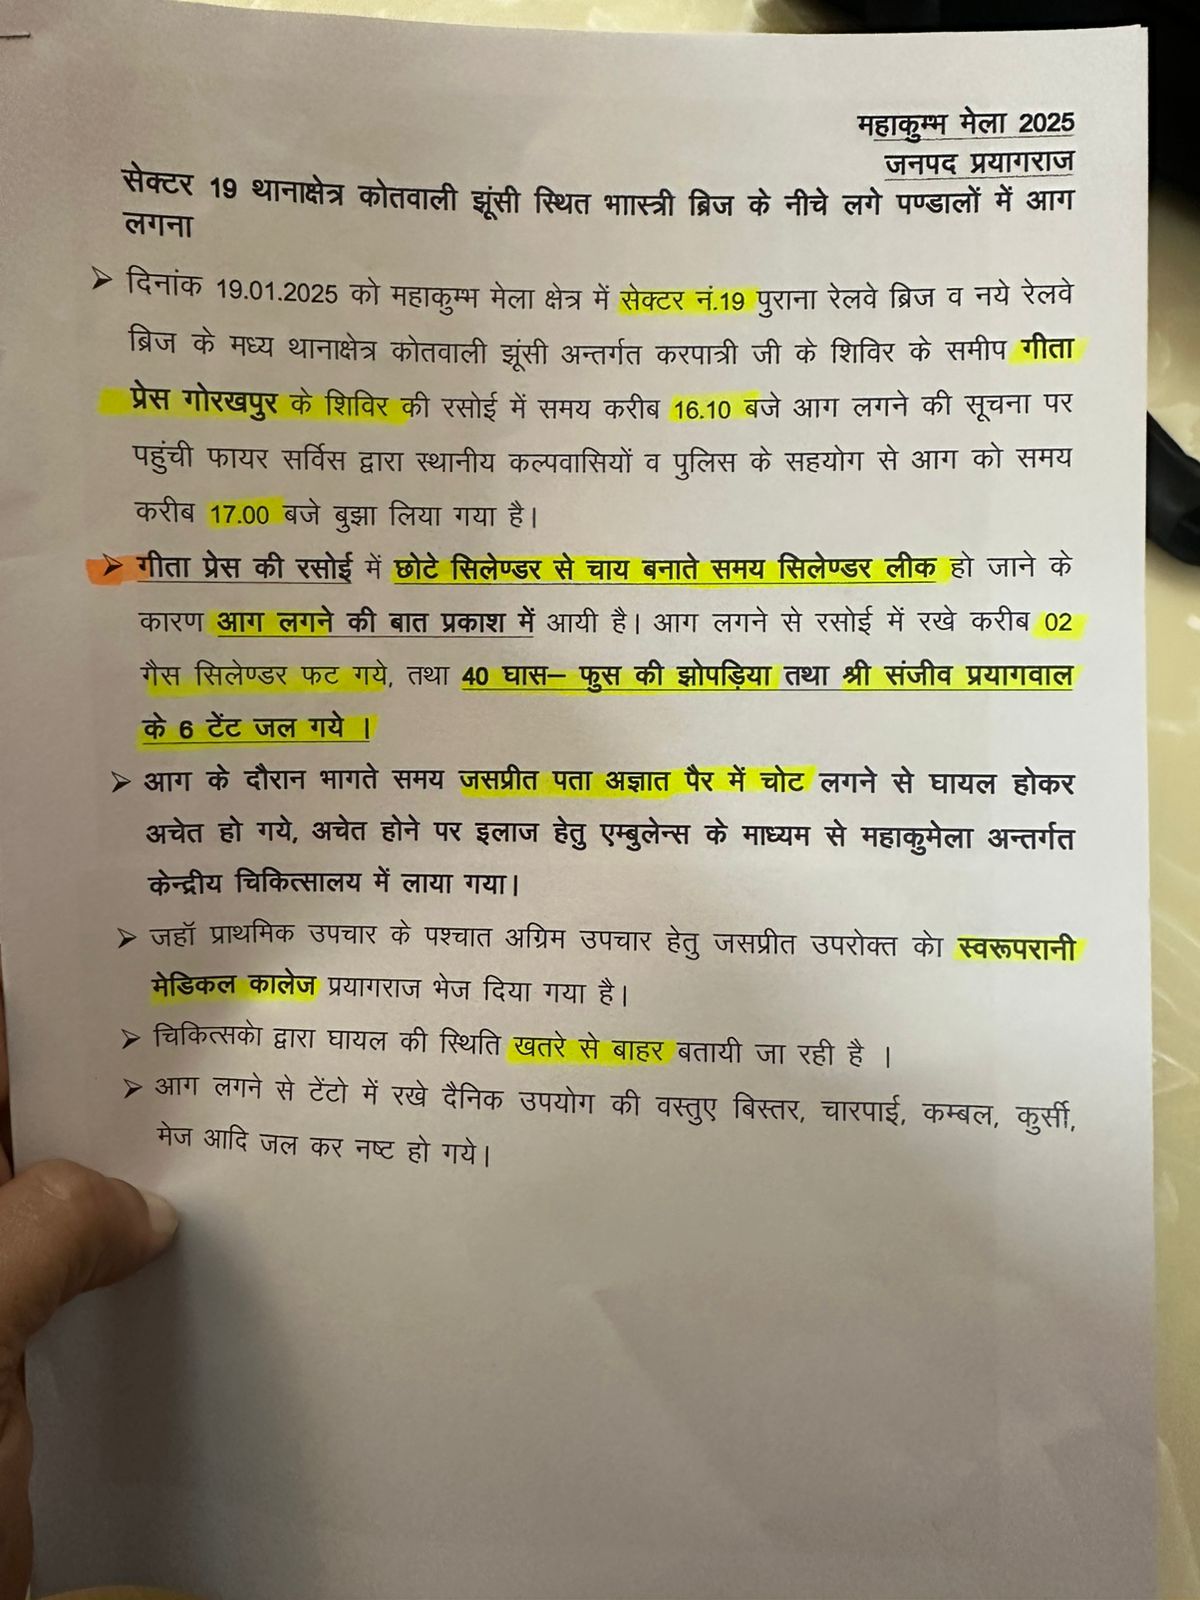 महाकुम्भ मेला 2025
जनपद प्रयागराज
सेक्टर 19 थानाक्षेत्र कोतवाली झूंसी स्थित भाास्त्री ब्रिज के नीचे लगे पण्डालों में आग
लगना
➢ दिनांक 19.01.2025 को महाकुम्भ मेला क्षेत्र में सेक्टर नं.19 पुराना रेलवे ब्रिज व नये रेलवे
ब्रिज के मध्य थानाक्षेत्र कोतवाली झूंसी अन्तर्गत करपात्री जी के शिविर के समीप गीता
प्रेस गोरखपुर के शिविर की रसोई में समय करीब 16.10 बजे आग लगने की सूचना पर
पहुंची फायर सर्विस द्वारा स्थानीय कल्पवासियों व पुलिस के सहयोग से आग को समय
करीब 17.00 बजे बुझा लिया गया है।
➢ गीता प्रेस की रसोई में छोटे सिलेण्डर से चाय बनाते समय सिलेण्डर लीक हो जाने के
कारण आग लगने की बात प्रकाश में आयी है। आग लगने से रसोई में रखे करीब 02
गैस सिलेण्डर फट गये, तथा 40 घास– फुस की झोपड़िया तथा श्री संजीव प्रयागवाल
के 6 टेंट जल गये ।
➢ आग के दौरान भागते समय जसप्रीत पता अज्ञात पैर में चोट लगने से घायल होकर
अचेत हो गये, अचेत होने पर इलाज हेतु एम्बुलेन्स के माध्यम से महाकुमेला अन्तर्गत
केन्द्रीय चिकित्सालय में लाया गया।
➢ जहॉ प्राथमिक उपचार के पश्चात अग्रिम उपचार हेतु जसप्रीत उपरोक्त केा स्वरूपरानी
मेडिकल कालेज प्रयागराज भेज दिया गया है।
➢ चिकित्सकेा द्वारा घायल की स्थिति खतरे से बाहर बतायी जा रही है ।
➢ आग लगने से टेंटो में रखे दैनिक उपयोग की वस्तुए बिस्तर, चारपाई, कम्बल, कुर्सी,
मेज आदि जल कर नष्ट हो गये।